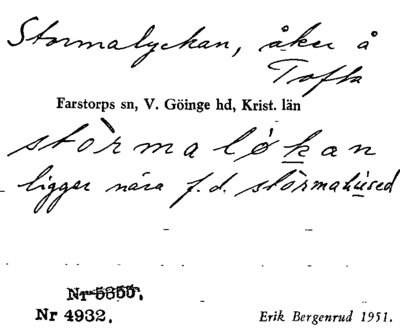 Stormalyckan, åker å
Tofta
Farstorps sn, V. Göinge hd, Krist. län
stòrmaløkan
ligger nära f.d. stòrmahused
Nr 5855.
Nr 4932.
Erik Bergenrud 1951.